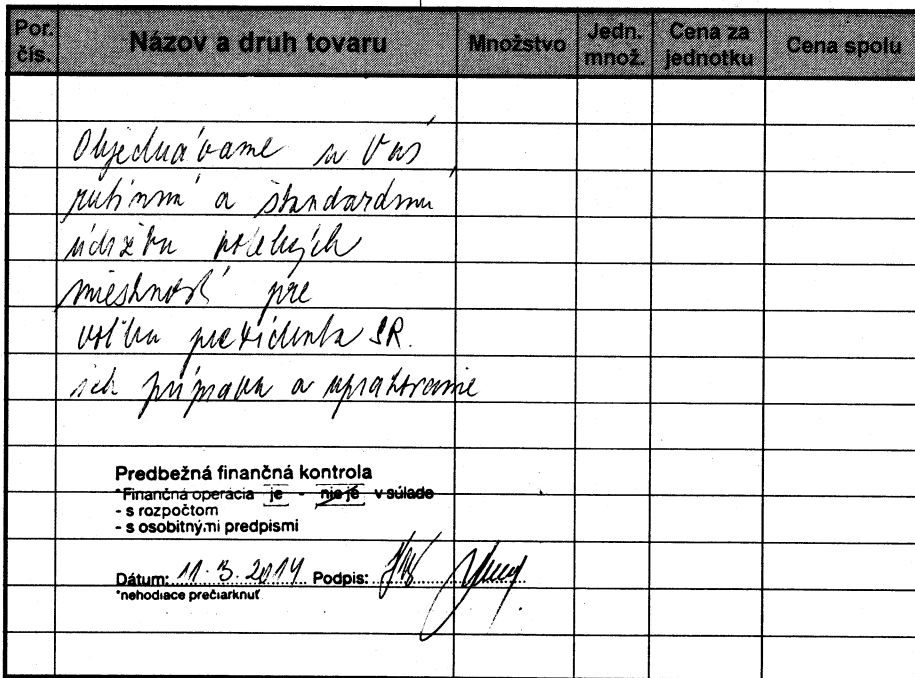 Por. čís. Názov a druh tovaru Množstvo Jedn. množ. Cena za jednotku Cena spolu
Objednávame u Vás
rutinnú a štandardnú
údržbu
miestností pre
voľbu prezidenta SR.
ich príprava a upratovanie
Predbežná finančná kontrola
*Finančná operácia je - nie je v súlade
- s rozpočtom
- s osobitnými predpismi
Dátum: 11. 3. 2014 Podpis:
*nehodiace prečiarknuť